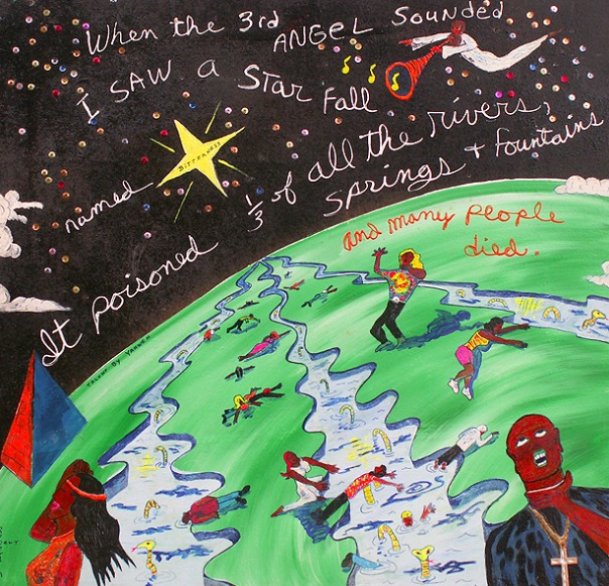 When the 3rd ANGEL SOUNDED
I SAW a STAR FALL
named BITTERNESS
It poisoned 1/3 of all the rivers,
SPRINGS + fountains
and many people
died.